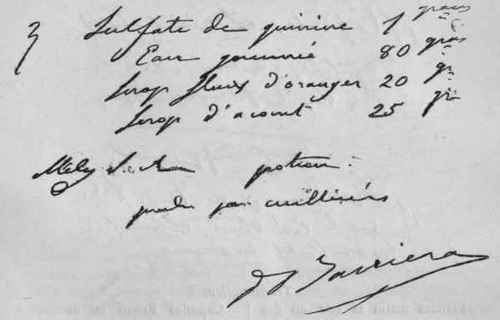 Sulfate de quinine 1 gram
Eau gommée 80 gram
Sirop fleurs d'oranger 20 gr
Sirop d'aconit 25 gr
Mêlez S. A. potion :
prendre par cuillerées
Dr Barriera